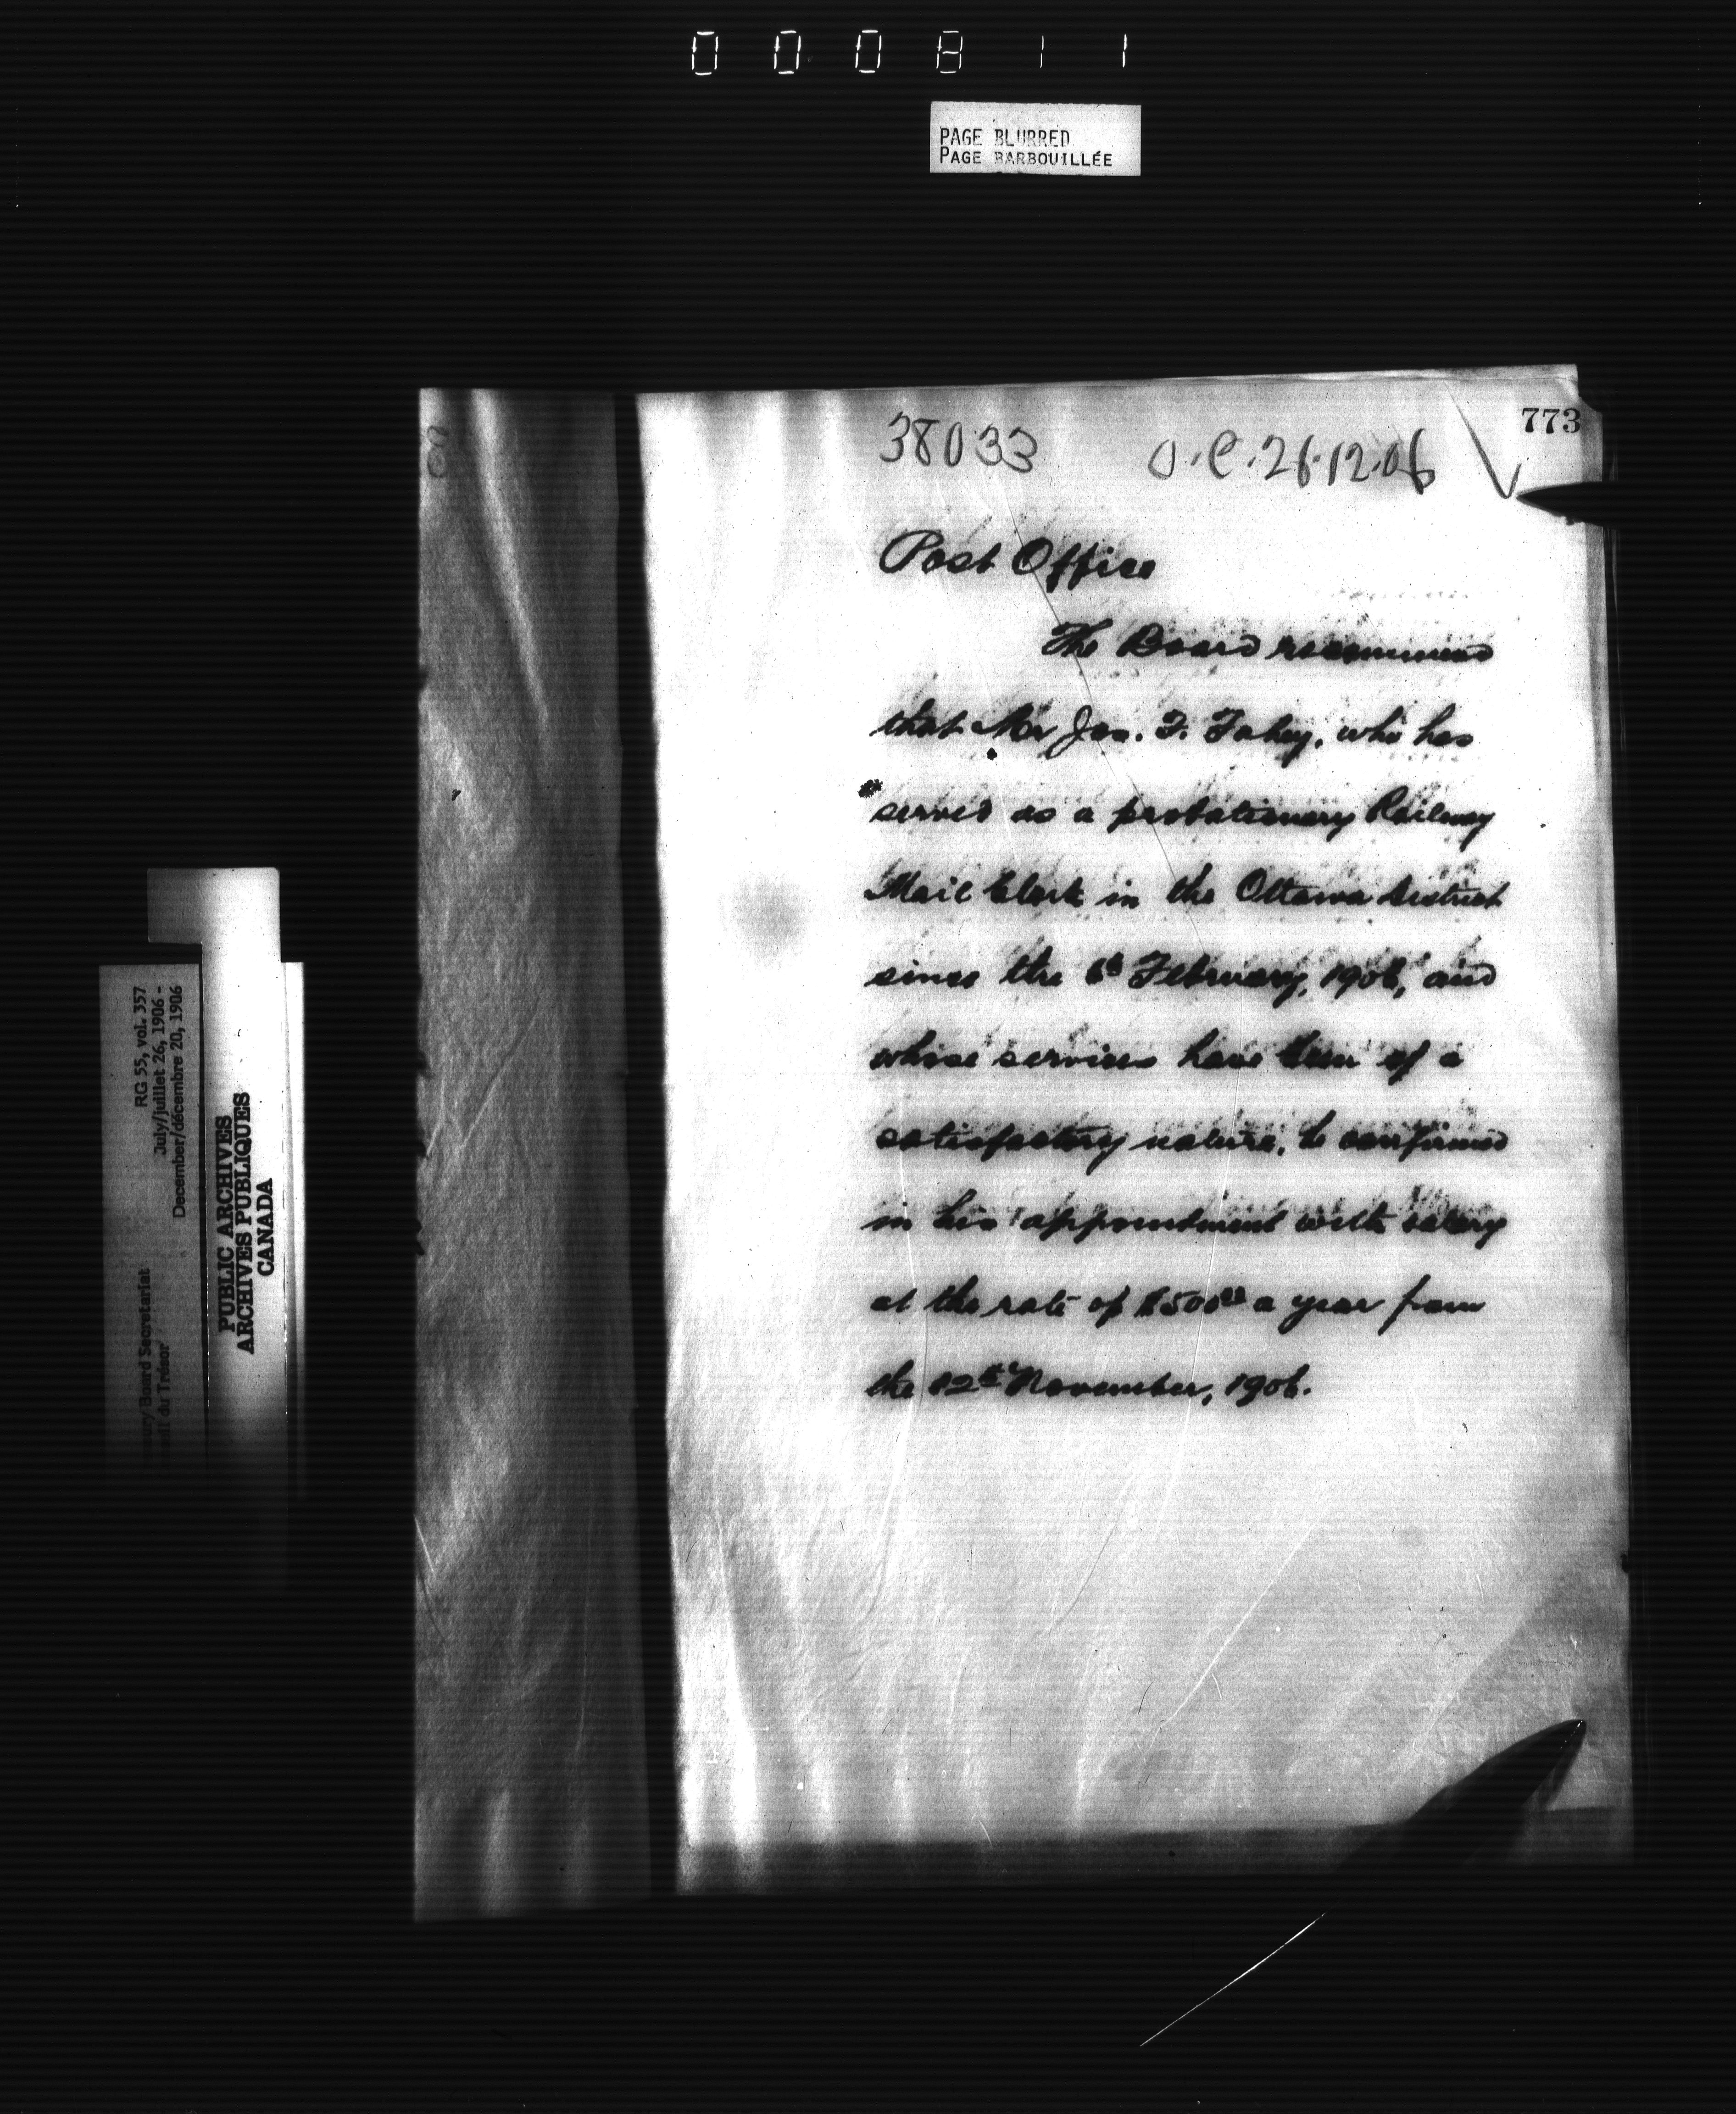 000811
PAGE BLURRED
PAGE BARBOUILLÉE
773
38033 O.C. 26.12.06
Post Office
The Board recommend
that Mr Jas. F. Fahey, who has
served as a probationary Railway
Mail Clerk in the Ottawa District
since the 6th February, 1906, and
whose services have been of a
satisfactory nature, be confirmed
in his appointment with salary
at the rate of $500.00 a year from
the 12th November, 1906.
RG 55, vol. 357
July/juillet 26, 1906 -
December/décembre 20, 1906
Board Secretariat
du Trésor
PUBLIC ARCHIVES
ARCHIVES PUBLIQUES
CANADA